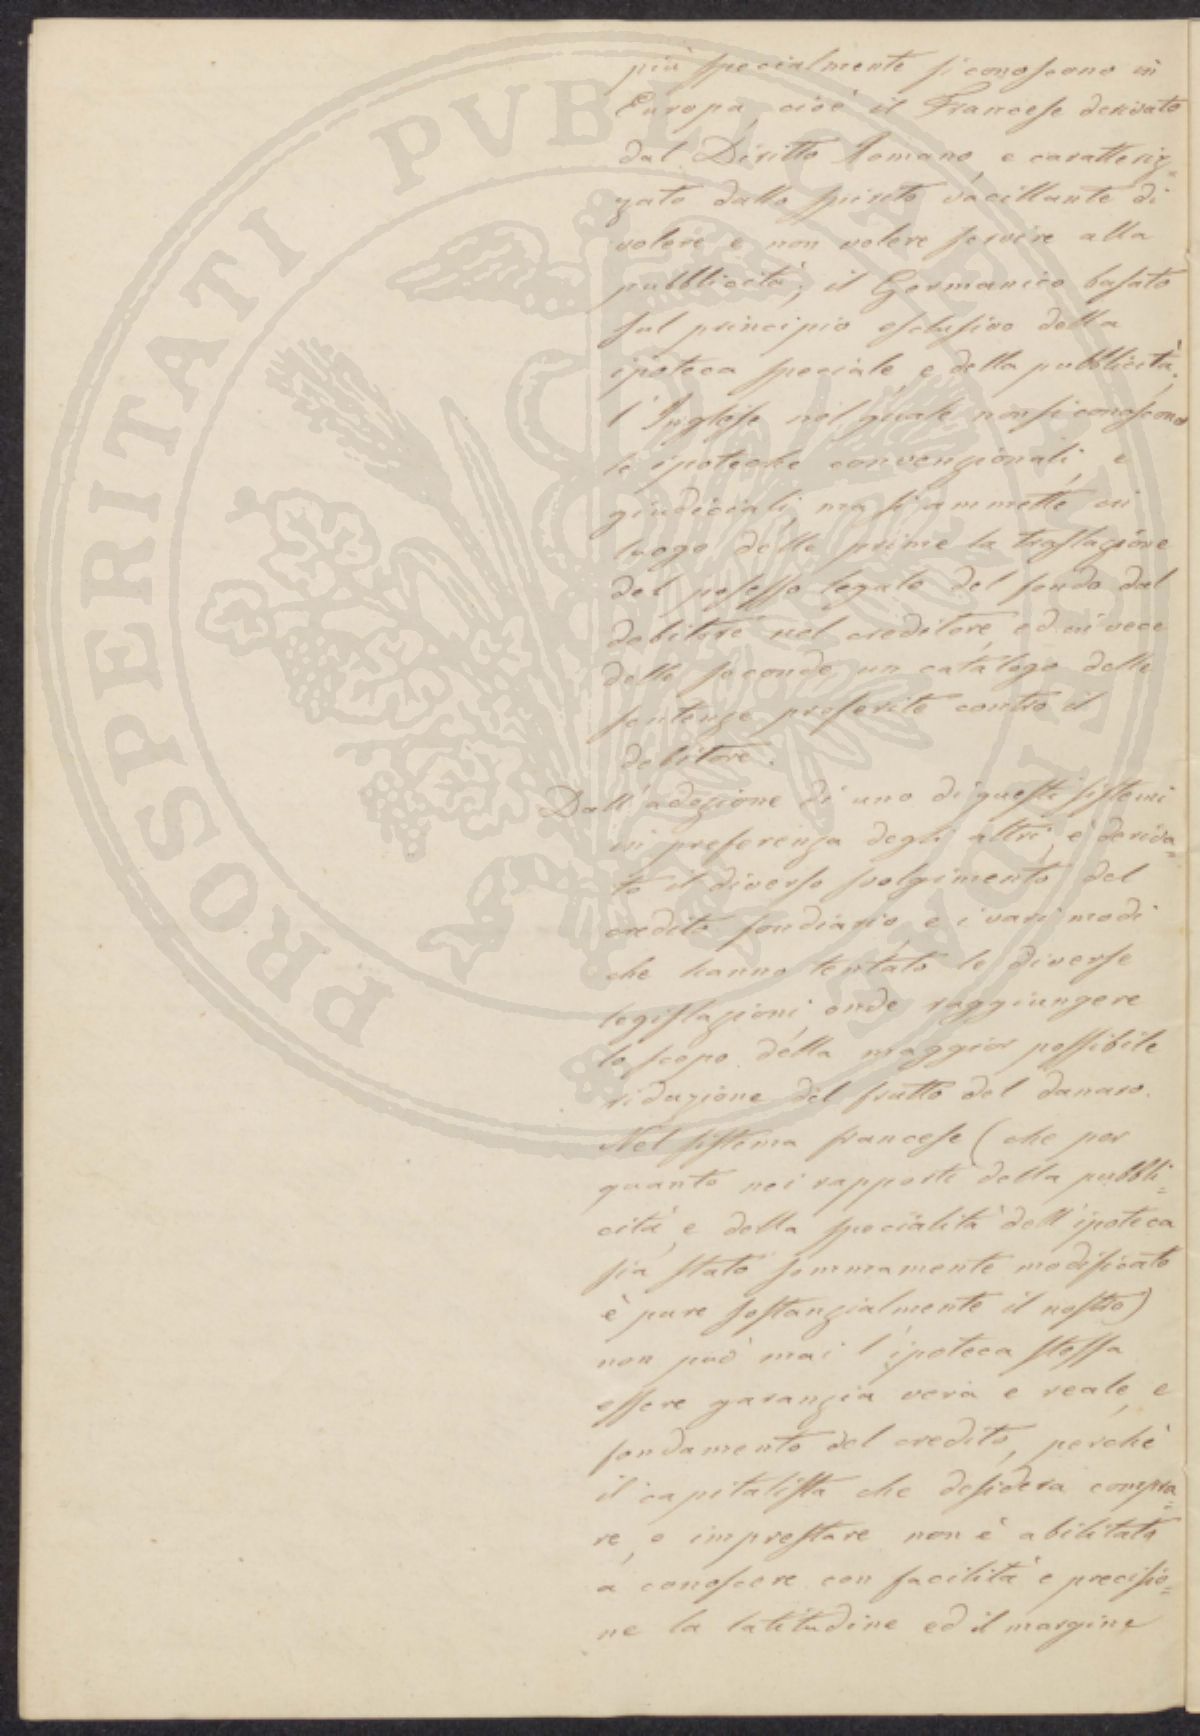 più specialmente si conoscono in
Europa, cioè il Francese derivato
dal Diritto Romano, e caratteriz=
zato dallo spirito vacillante di
volere e non volere servire alla
pubblicità; il Germanico basato
sul principio esclusivo della
ipoteca speciale, e della pubblicità;
l'Inglese nel quale non si conoscono
le ipoteche convenzionali, e
giudiciali, ma si ammette in
luogo delle prime la traslazione
del possesso legale del fondo dal
debitore nel creditore, ed in vece
delle seconde un catalogo delle
sentenze proferite contro il
debitore.
Dall'adozione di uno di questi sistemi
in preferenza degli altri, è deriva=
to il diverso svolgimento del
credito fondiario e i vari modi
che hanno tentato le diverse
legislazioni, onde raggiungere
lo scopo della maggior possibile
riduzione del frutto del danaro.
Nel sistema francese (che per
quanto nei rapporti della pubbli=
cità, e della specialità dell'ipoteca
sia stato sommamente modificato
è pure sostanzialmente il nostro)
non può mai l'ipoteca stessa
essere garanzia vera e reale, e
fondamento del credito, perchè
il capitalista che desidera compra=
re, o imprestare non è abilitato
a conoscere con facilità e precisio=
ne la latitudine ed il margine
PROSPERITATI PVBLICAE